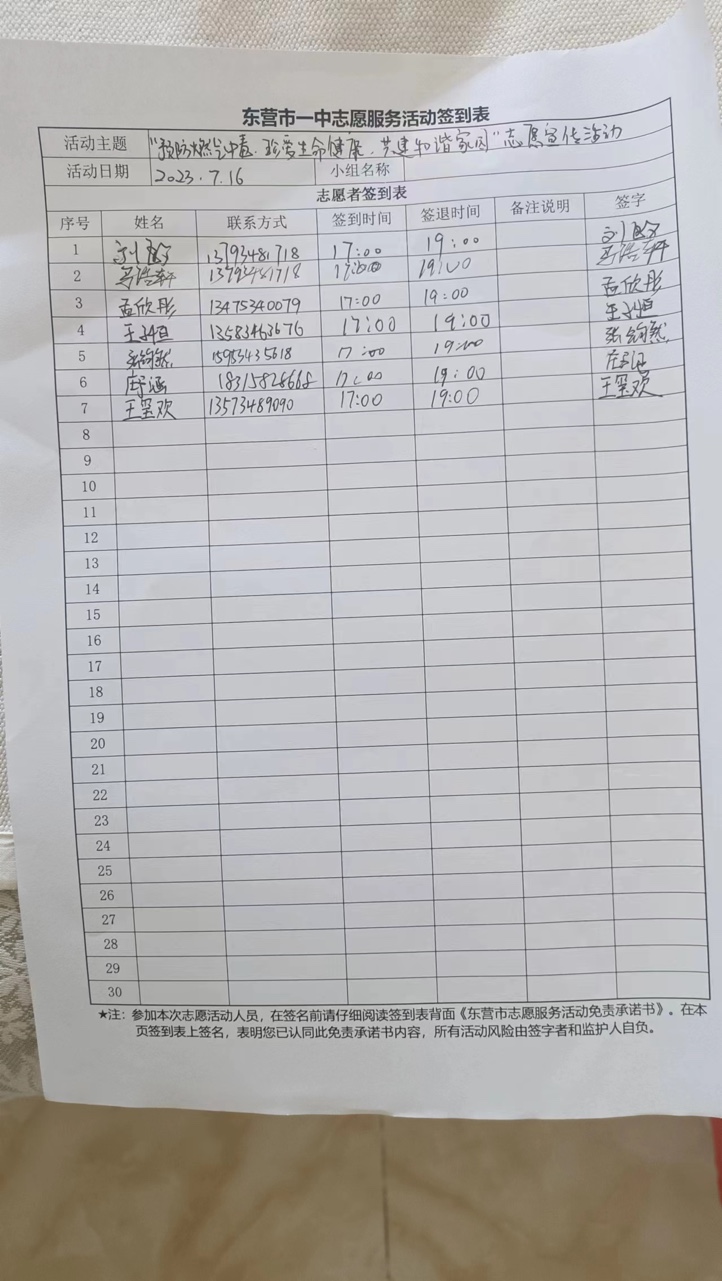 东营市一中志愿服务活动签到表
活动主题 "预防燃气中毒、珍爱生命健康、共建和谐家园"志愿宣传活动
活动日期 2023.7.16 小组名称
志愿者签到表
序号 姓名 联系方式 签到时间 签退时间 备注说明 签字
1 13793481718 17:00 19:00
2 13793481718 17:00 19:00
3 孟欣彤 13475340079 17:00 19:00 孟欣彤
4 13583463676 17:00 19:00
5 15983435618 17:00 19:00
6 18315828668 17:00 19:00
7 13573489090 17:00 19:00
8
9
10
11
12
13
14
15
16
17
18
19
20
21
22
23
24
25
26
27
28
29
30
★注：参加本次志愿活动人员，在签名前请仔细阅读签到表背面《东营市志愿服务活动免责承诺书》。在本
页签到表上签名，表明您已认同此免责承诺书内容，所有活动风险由签字者和监护人自负。